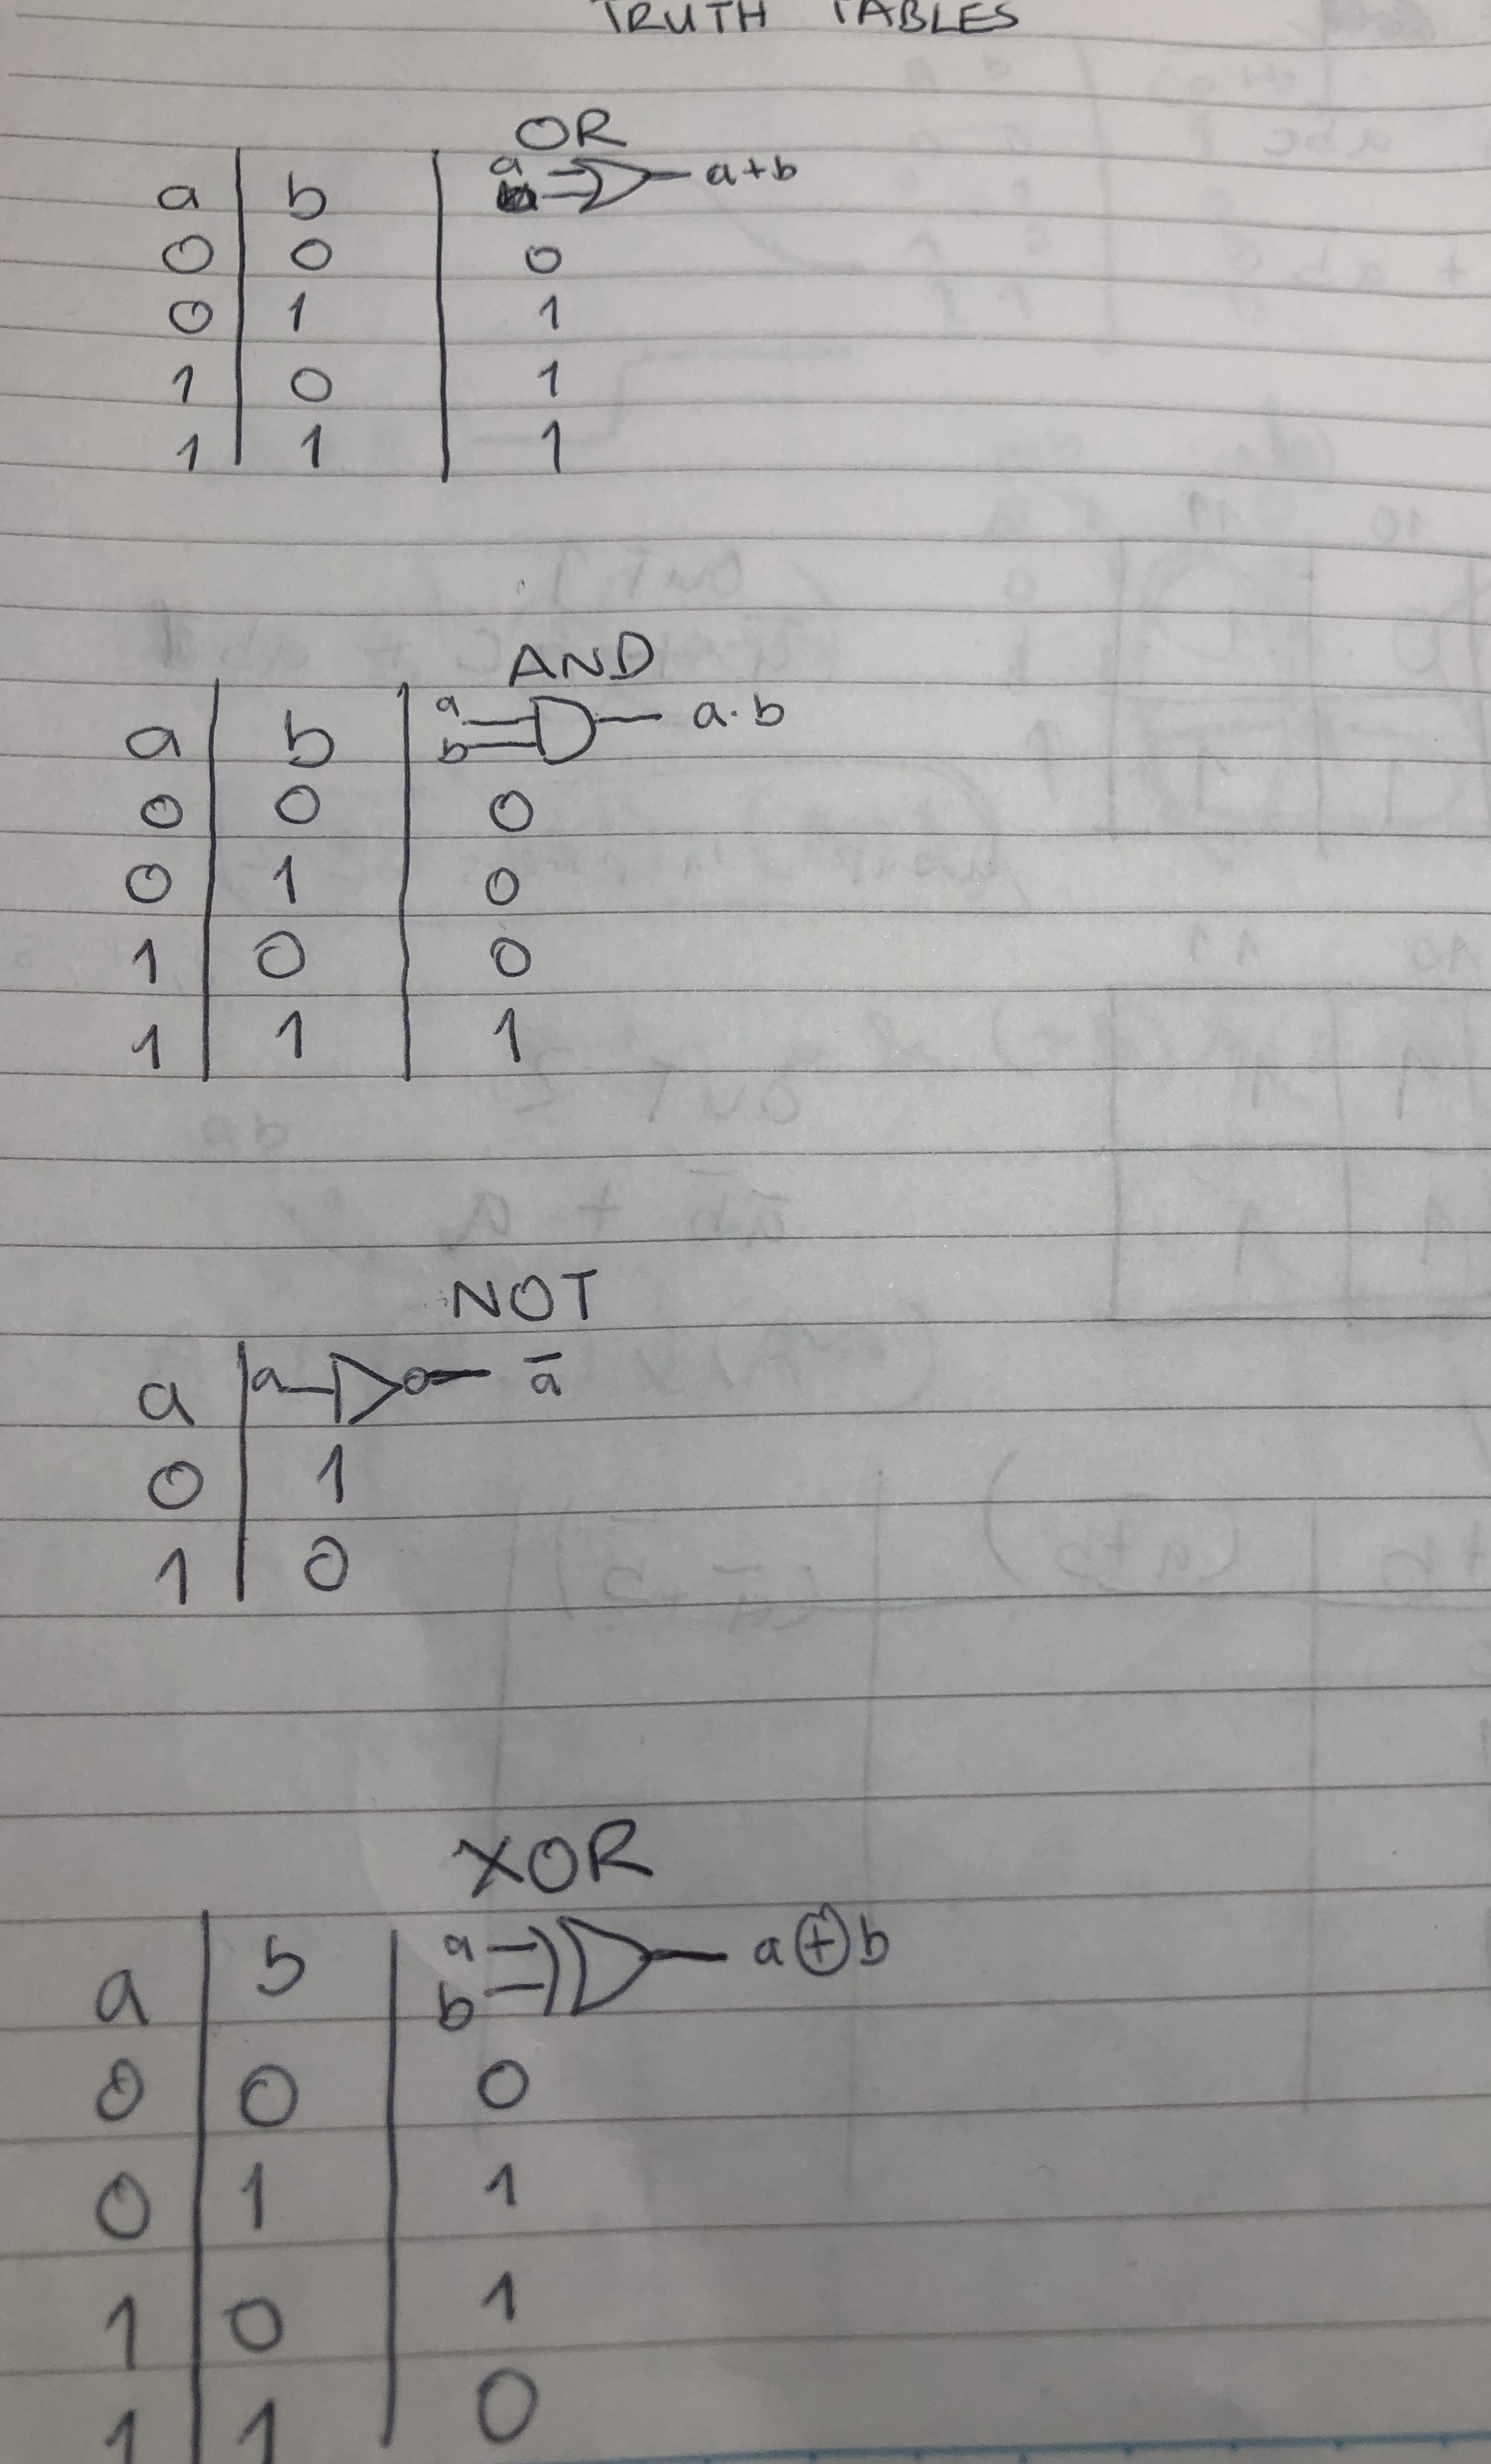 TRUTH TABLES
OR
a b a a+b
b
0 0 0
0 1 1
1 0 1
1 1 1
AND
a b a a·b
b
0 0 0
0 1 0
1 0 0
1 1 1
NOT
a a a̅
0 1
1 0
XOR
a b a a⊕b
b
0 0 0
0 1 1
1 0 1
1 1 0